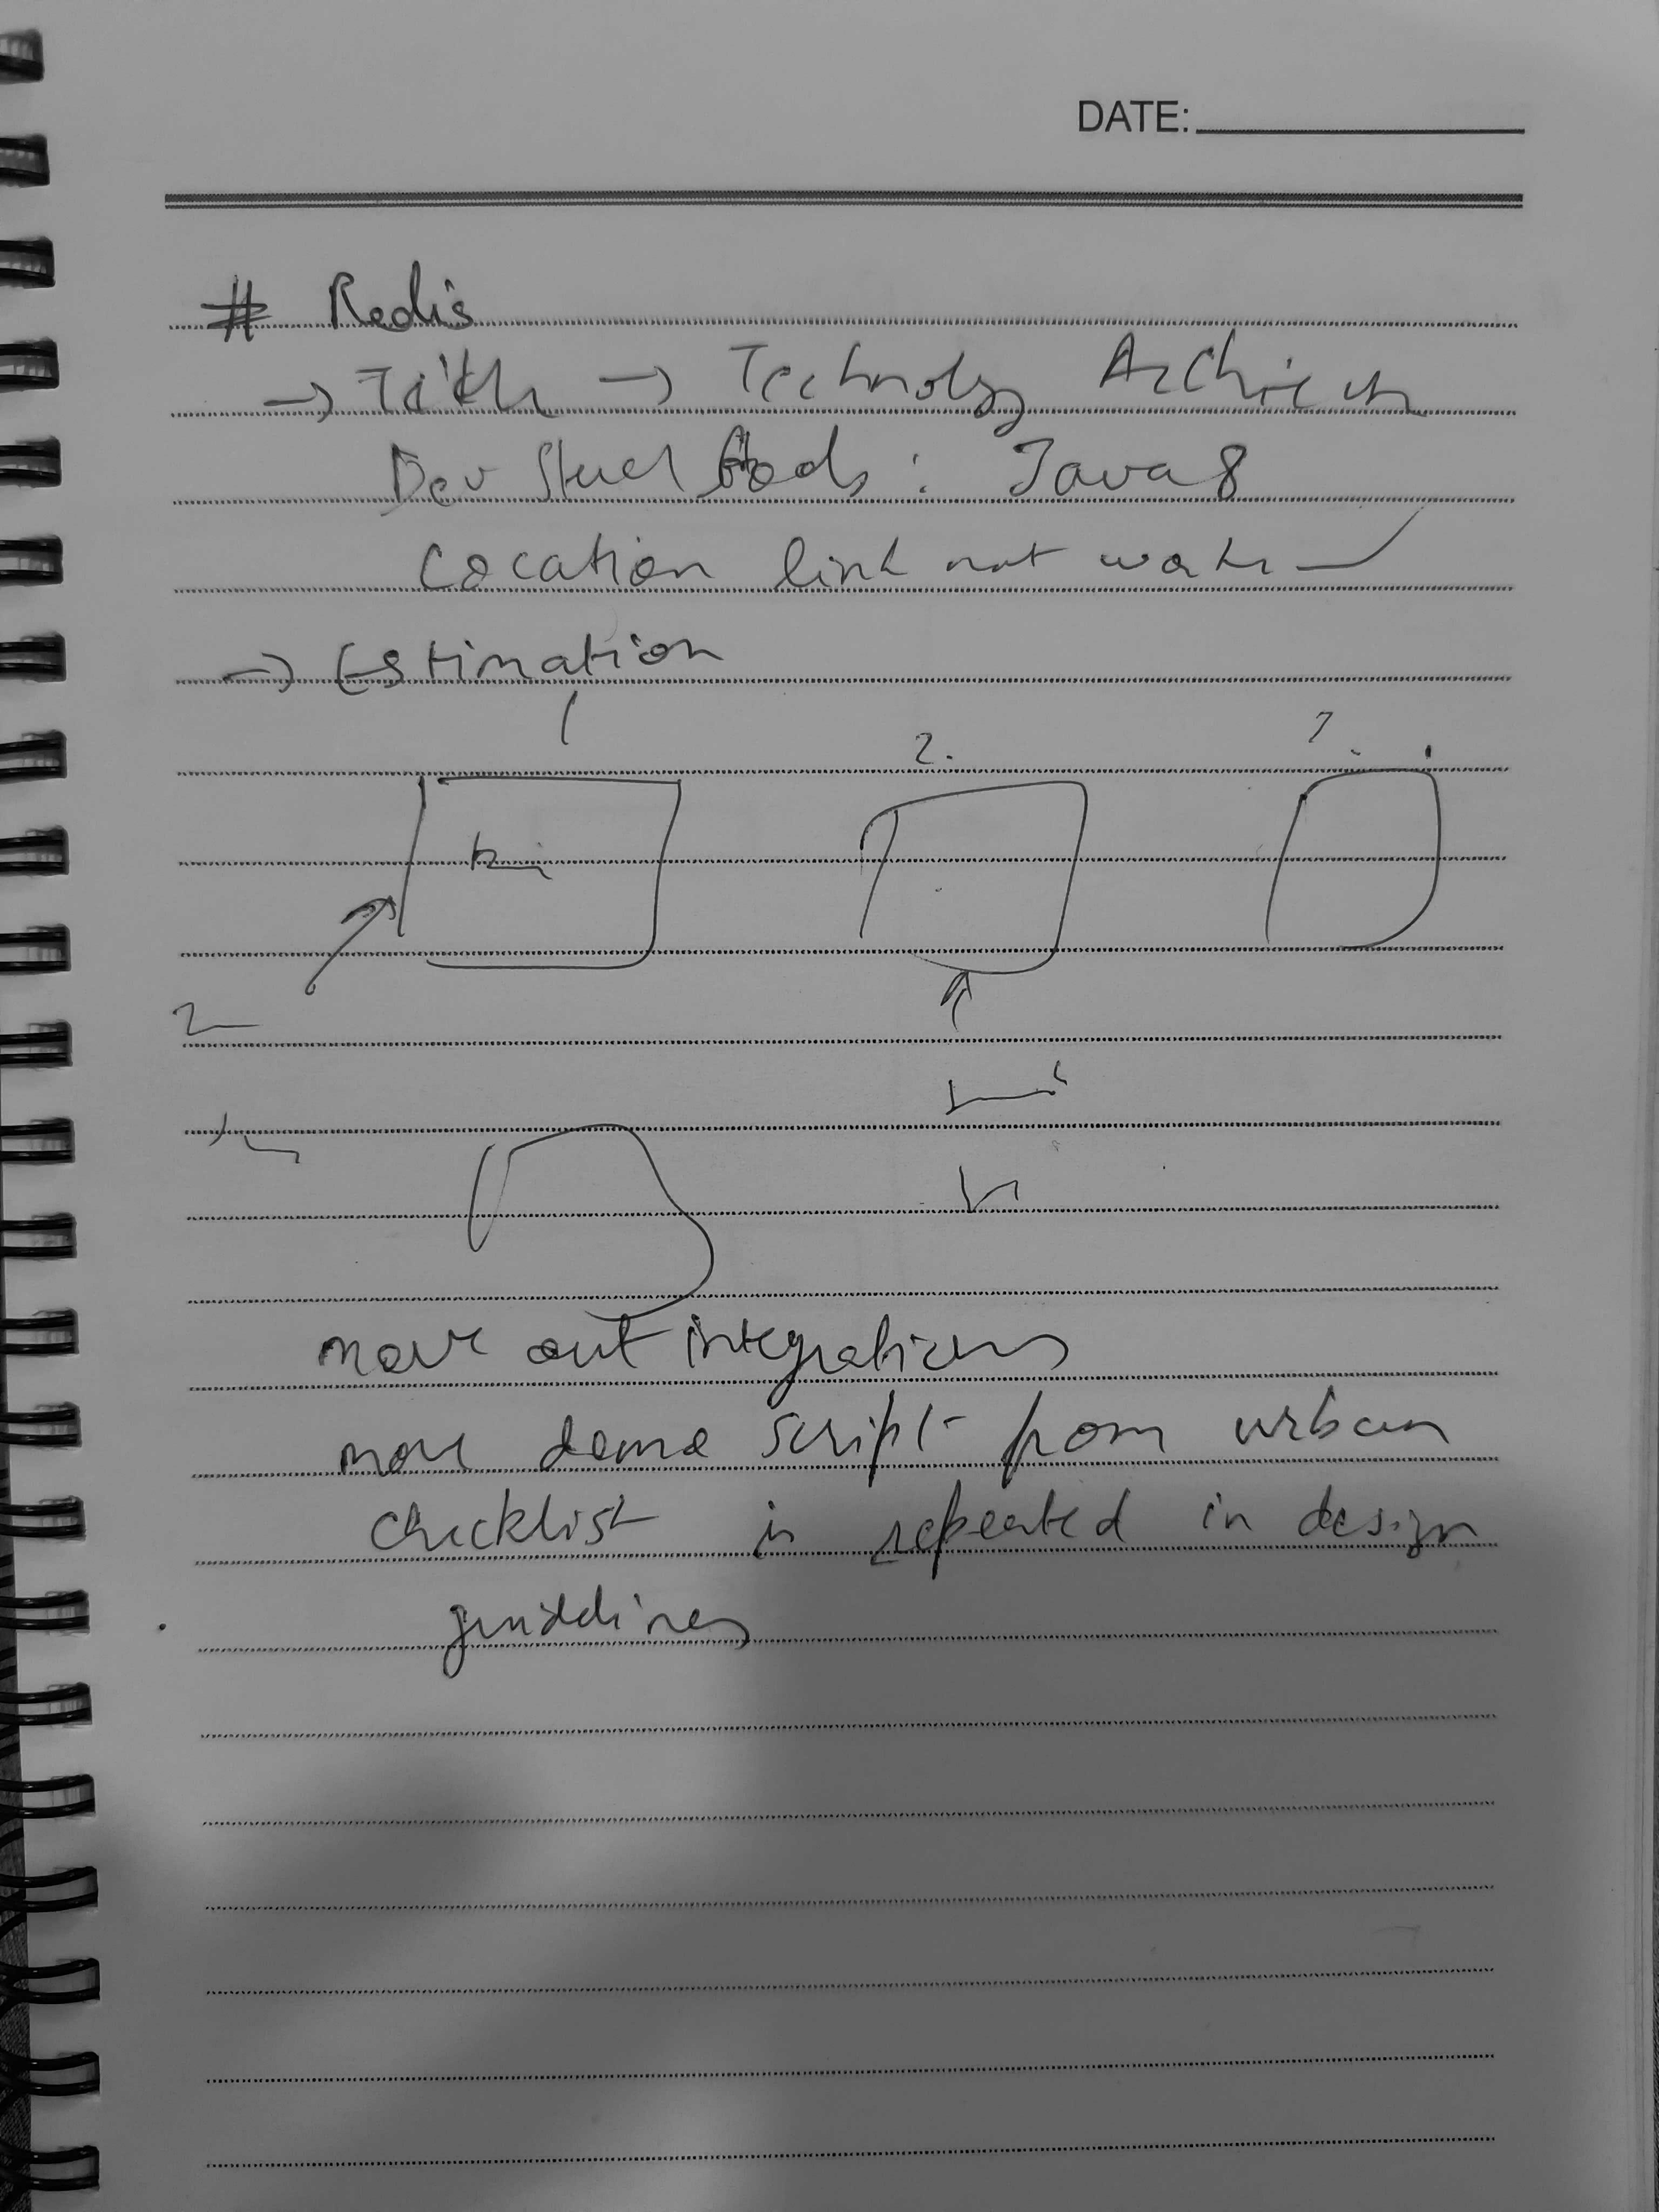 DATE:
# Redis
→ Title → Technology Architect
Dev : Java 8
Location link not work
→ Estimation
1 2.
2
move out integrations
move demo script from urban
checklist is repeated in design
guidelines